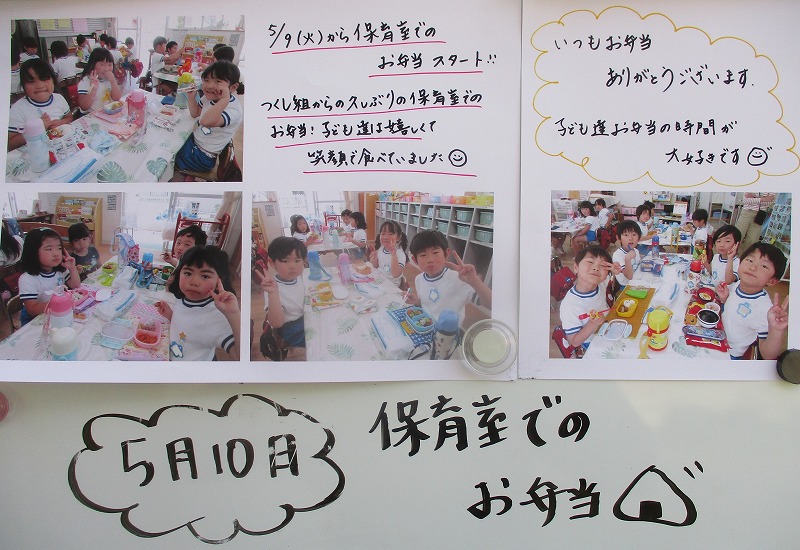 5/9(火)から保育室での
お弁当スタート!!
つくし組からの久しぶりの保育室での
お弁当!子ども達は嬉しくて
笑顔で食べていました
いつもお弁当
ありがとうございます.
子ども達お弁当の時間が
大好きです
5月10日
保育室での
お弁当